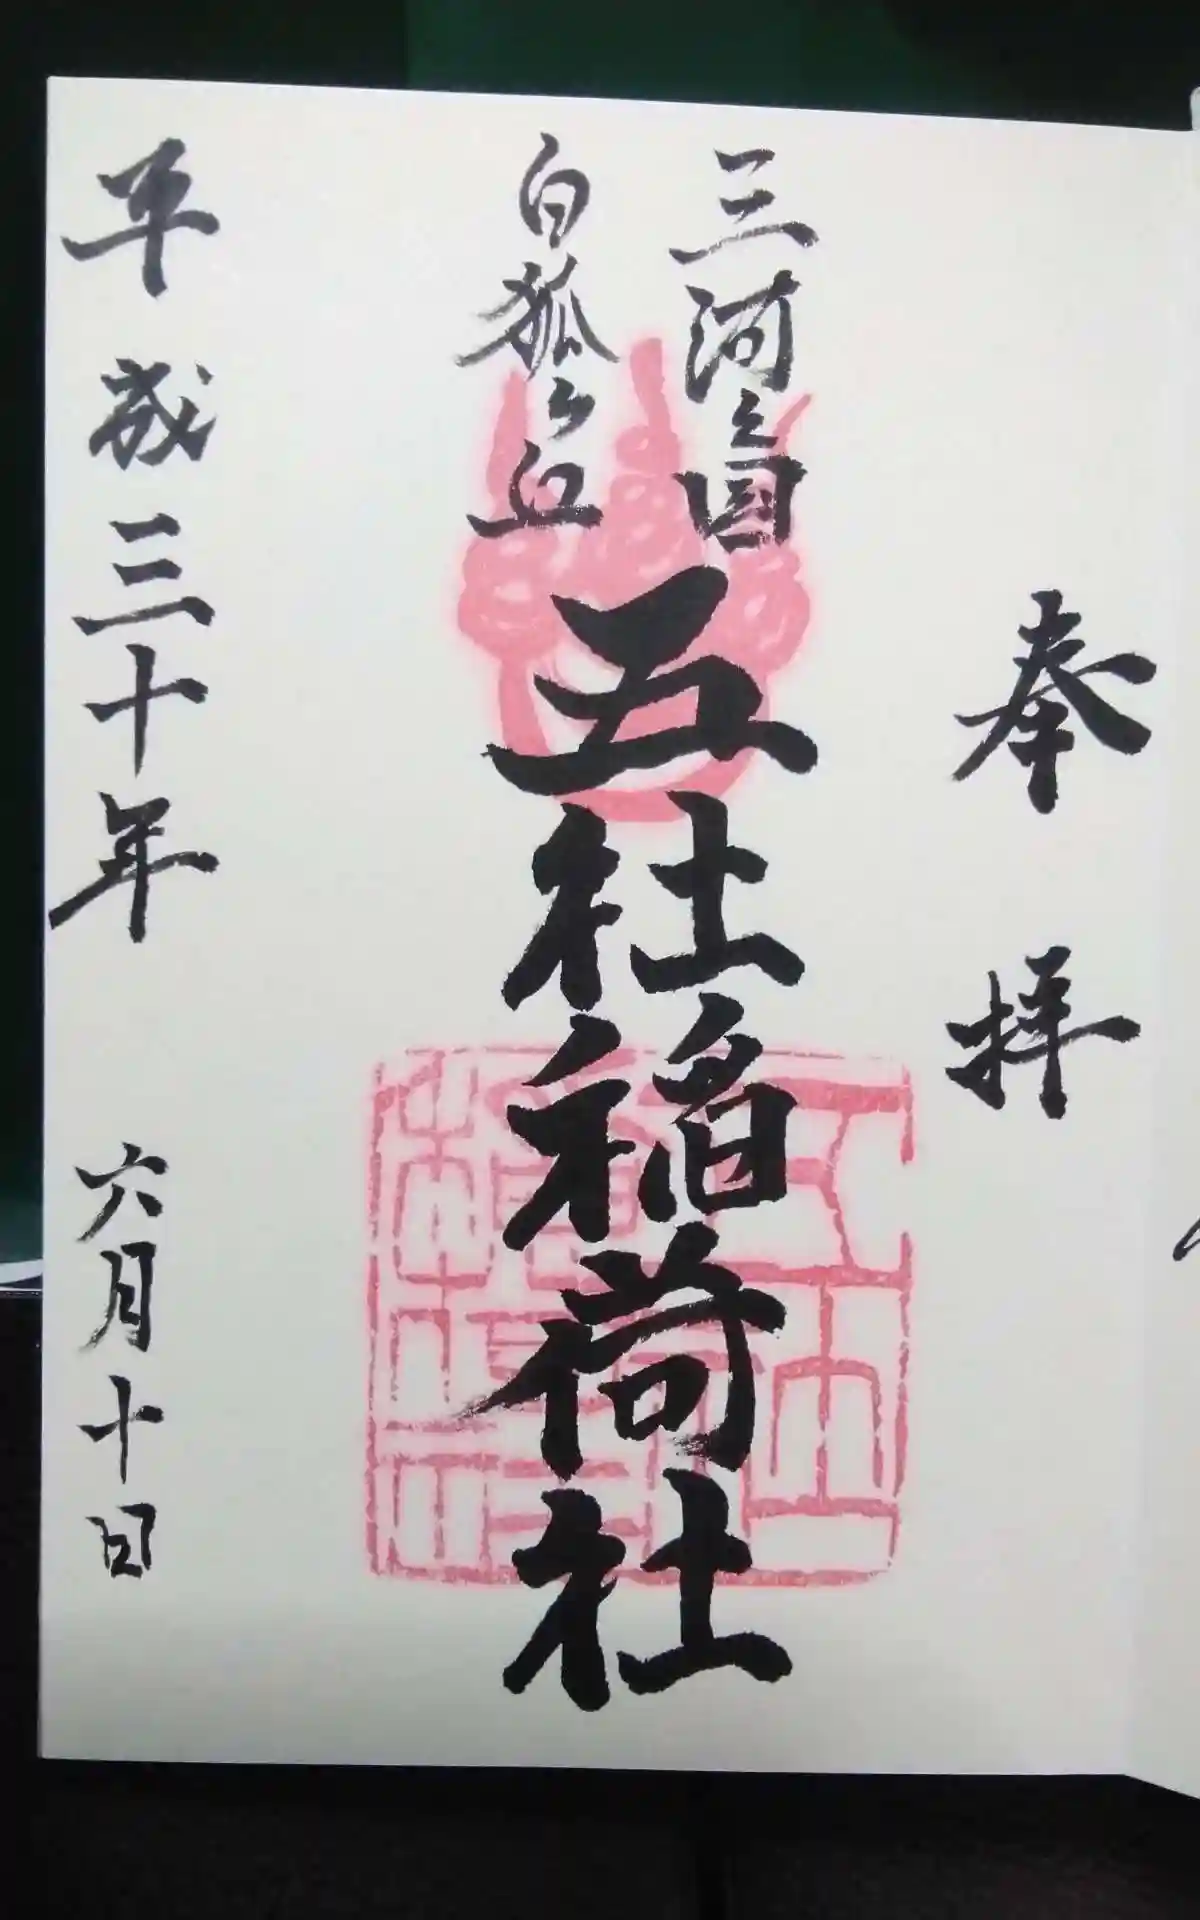 奉拝
三河之国
白狐ヶ丘
五社稲荷社
平成三十年 六月十日